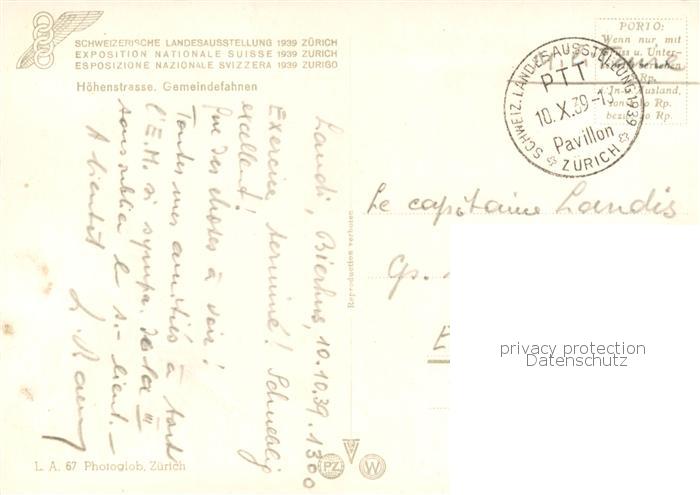 SCHWEIZERISCHE LANDESAUSSTELLUNG 1939 ZÜRICH
EXPOSITION NATIONALE SUISSE 1939 ZURICH
ESPOSIZIONE NAZIONALE SVIZZERA 1939 ZURIGO
Höhenstrasse. Gemeindefahnen
PORTO:
Wenn nur mit
Gruss u. Unter-
Rp.
In- Ausland,
Rp.
Rp.
SCHWEIZ. LANDESAUSSTELLUNG 1939
PTT
10.X.39-1
Pavillon
ZÜRICH
Landi, 10.10.39. 1300
Exercice terminé!
excellent!
Que des choses à voir!
Toutes mes amitiés à tout
l'E.M. si sympa. de la III
A bientôt
Reproduction verboten
Le capitaine Landis
Gp.
E
privacy protection
Datenschutz
L. A. 67 Photoglob, Zürich
PZ
W